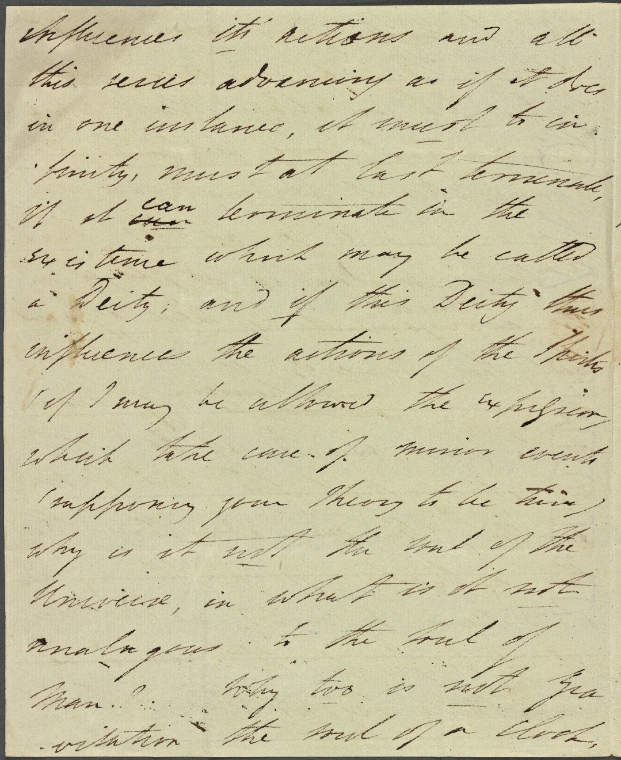 influences its actions and all
this series advancing as if it does
in one instance, it must to in
finity, must at last terminate,
if it can terminate in the
existence which may be called
a Deity; and if this Deity thus
influences the actions of the Spirits
(if I may be allowed the expression)
which take care of minor events
(supposing your theory to be true)
why is it not the soul of the
Universe, in what is it not
analagous to the soul of
Man? Why too is not Gra
vitation the soul of a Clock,